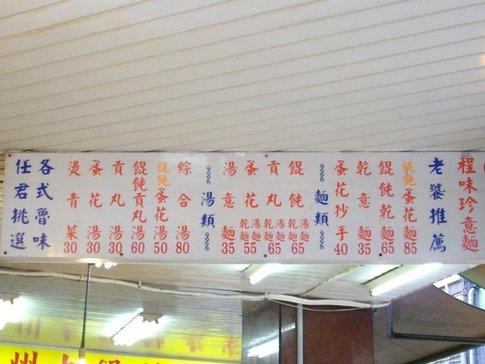 程味珍意麵
老婆推薦
餛飩蛋花麵85
餛飩乾麵65
乾意麵35
蛋花抄手40
麵類
餛飩乾麵湯麵65
貢丸乾麵湯麵65
蛋花乾麵湯麵55
湯意麵35
湯類
綜合湯80
餛飩蛋花湯50
餛飩貢丸湯60
貢丸湯30
蛋花湯30
燙青菜30
各式魯味
任君挑選
州